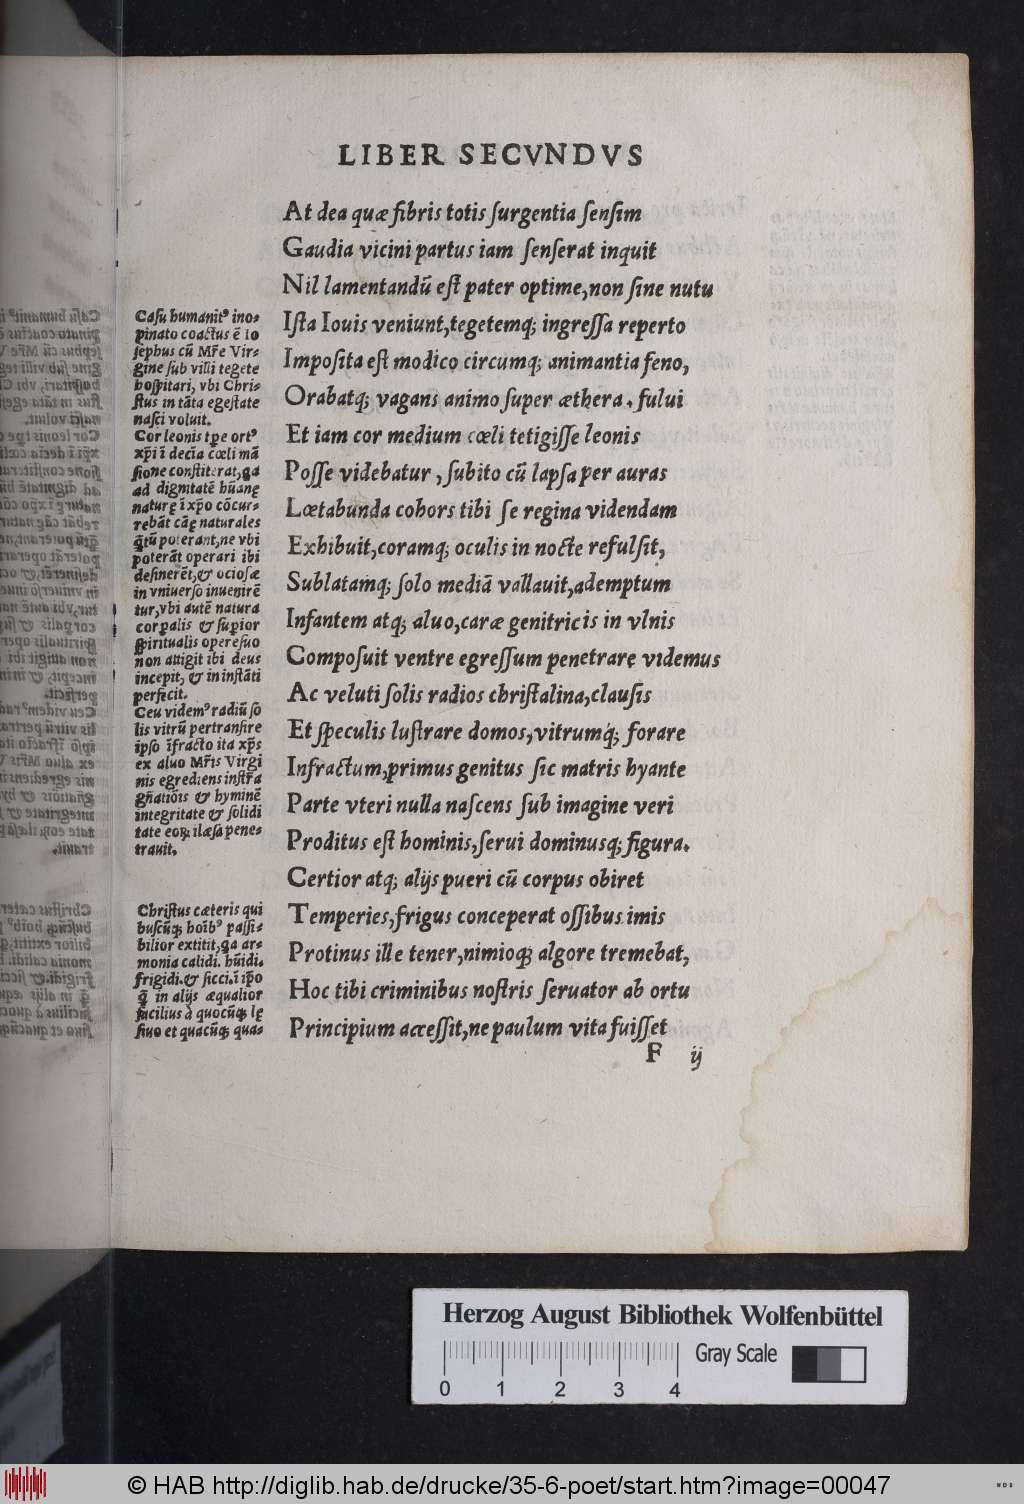 LIBER SECVNDVS
At dea quæ fibris totis ſurgentia ſenſim
Gaudia vicini partus iam ſenſerat inquit
Nil lamentandū eſt pater optime, non ſine nutu
Iſta Iouis veniunt, tegetemq; ingreſſa reperto
Impoſita eſt modico circumq; animantia feno,
Orabatq; vagans animo ſuper æthera. fului
Et iam cor medium cœli tetigiſſe leonis
Poſſe videbatur, ſubito cū lapſa per auras
Lœtabunda cohors tibi ſe regina videndam
Exhibuit, coramq; oculis in nocte refulſit,
Sublatamq; ſolo mediā vallauit, ademptum
Infantem atq; aluo, caræ genitricis in vlnis
Compoſuit ventre egreſſum penetrare videmus
Ac veluti ſolis radios chriſtalina, clauſis
Et ſpeculis luſtrare domos, vitrumq́; forare
Infractum, primus genitus ſic matris hyante
Parte vteri nulla naſcens ſub imagine veri
Proditus eſt hominis, ſerui dominusq; figura.
Certior atq; alijs pueri cū corpus obiret
Temperies, frigus conceperat oſſibus imis
Protinus ille tener, nimioq; algore tremebat,
Hoc tibi criminibus noſtris ſeruator ab ortu
Principium acceſſit, ne paulum vita fuiſſet
F ij
Caſu humanitꝰ ino-
pinato coactus ē Io
ſephus cū Mr̄e Vir-
gine ſub villi tegete
hoſpitari, vbi Chri-
ſtus in tāta egeſtate
naſci voluit.
Cor leonis tꝑe ortꝰ
xp̄i ī decīa cœli mā
ſione conſtiterat, qa
ad dignitatē hūanę
naturę ī xp̄o cōcur-
rebāt cāę naturales
q̄tū poterant, ne vbi
poterāt operari ibi
deſinerēt, & ocioſæ
in vniuerſo inuenirē
tur, vbi autē natura
corꝑalis & ſuꝑior
ſpiritualis opere ſuo
non attigit ibi deus
incepit, & in inſtāti
perfecit.
Ceu videmꝰ radiū ſo
lis vitrū pertranſire
ipſo īfracto ita xp̄s
ex aluo Mr̄is Virgi
nis egrediens inſtr̄a
gn̄atiōis & hyminē
integritate & ſolidi
tate eoꝝ ilæſa pene-
trauit.
Chriſtus cæteris qui
buſcūq; hoībꝰ paſſi-
bilior extitit, qa ar-
monia calidi. hūidi.
frigidi. & ſicci. ī ip̄o
q̄ in alijs æqualior
facilius à quocūq; lę
ſiuo et quacūq; qua-
Herzog August Bibliothek Wolfenbüttel
Gray Scale
0 1 2 3 4
© HAB http://diglib.hab.de/drucke/35-6-poet/start.htm?image=00047